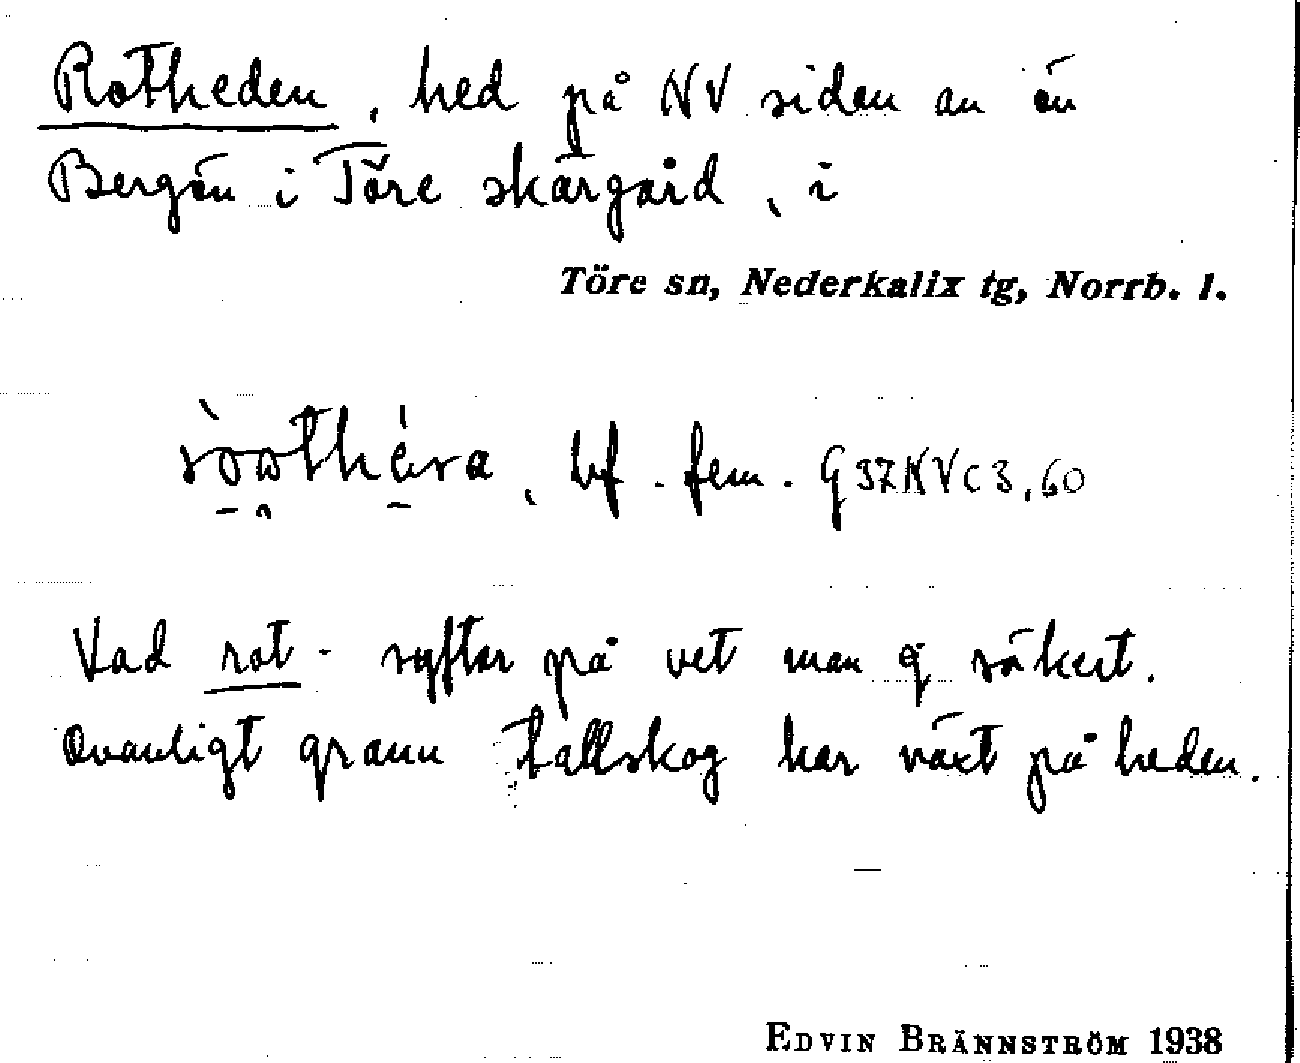 Rotheden, hed på NV sidan av ön
Bergön i Töre skärgård, i
Töre sn, Nederkalix tg, Norrb. l.
bf. fem. G37NVC3,60
Vad rot- syftar på vet man ej säkert.
Ovanligt grann tallskog har växt på heden.
EDVIN BRÄNNSTRÖM 1938